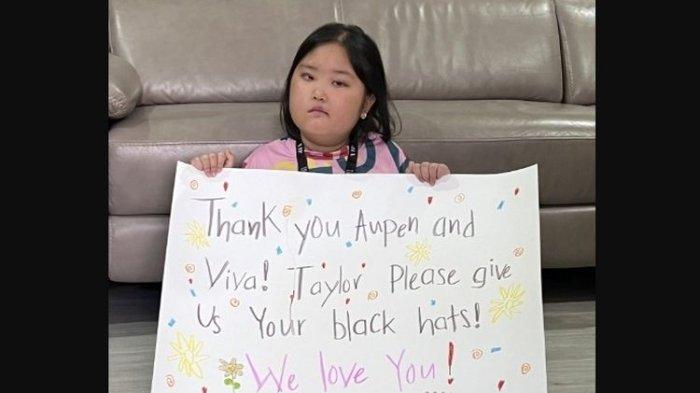 Thank you Aupen and
Viva! Taylor Please give
us Your black hats!
We love You!